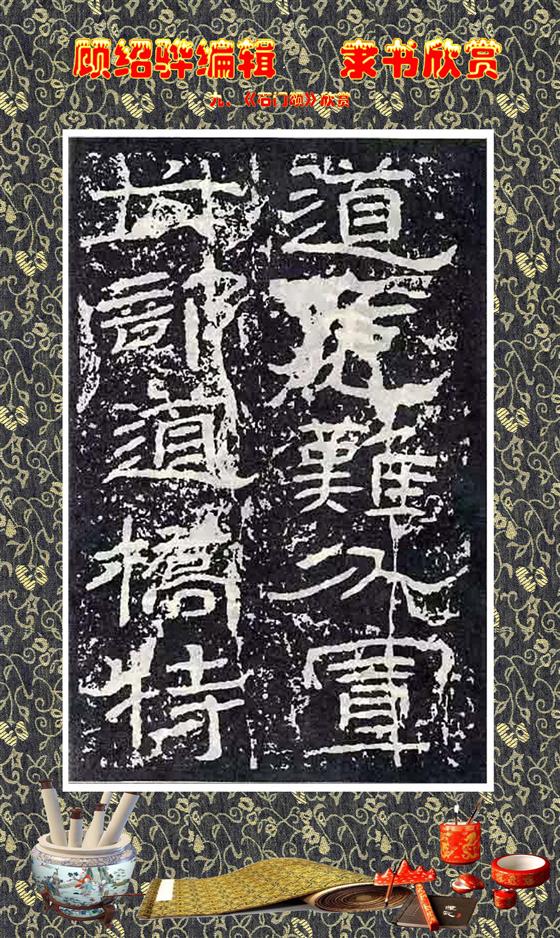 顾绍骅编辑 隶书欣赏
九、《石门颂》欣赏
道危難分置
六部道橋特